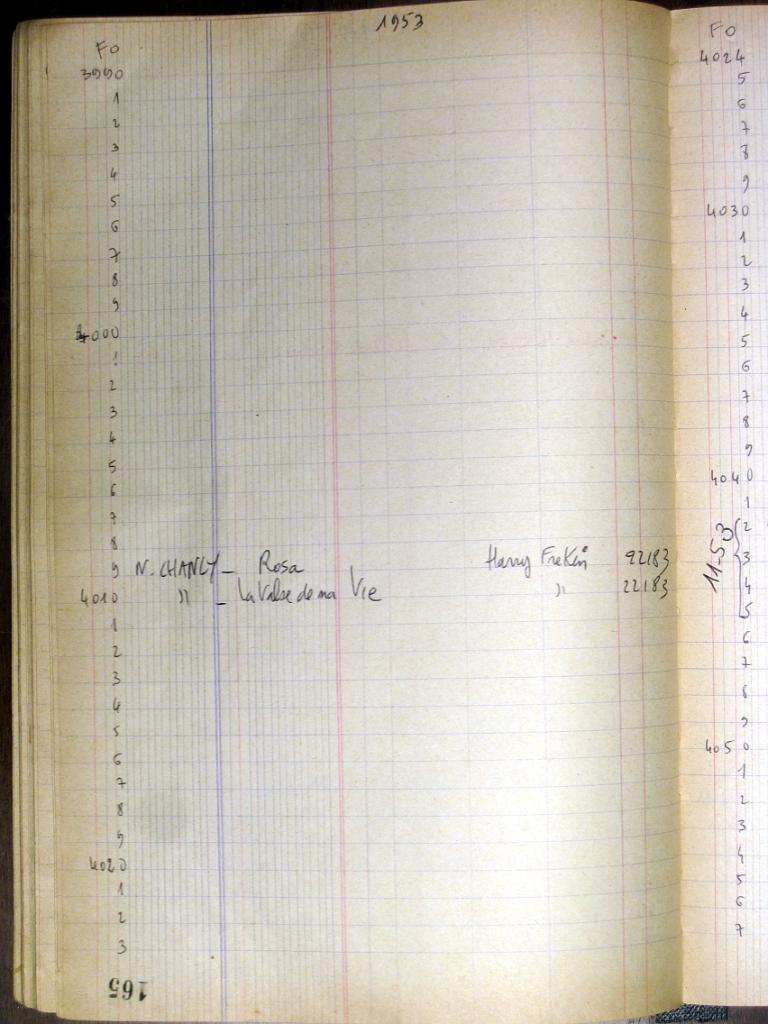 1953
Fo
3990
1
2
3
4
5
6
7
8
9
4000
1
2
3
4
5
6
7
8
9 N. CHANLY - Rosa Harry Frekin 92183
4010 " - La Valse de ma Vie " 22183
1
2
3
4
5
6
7
8
9
4020
1
2
3
165
Fo
4024
5
6
7
8
9
4030
1
2
3
4
5
6
7
8
9
4040
1
11-53
2
3
4
5
6
7
8
9
4050
1
2
3
4
5
6
7